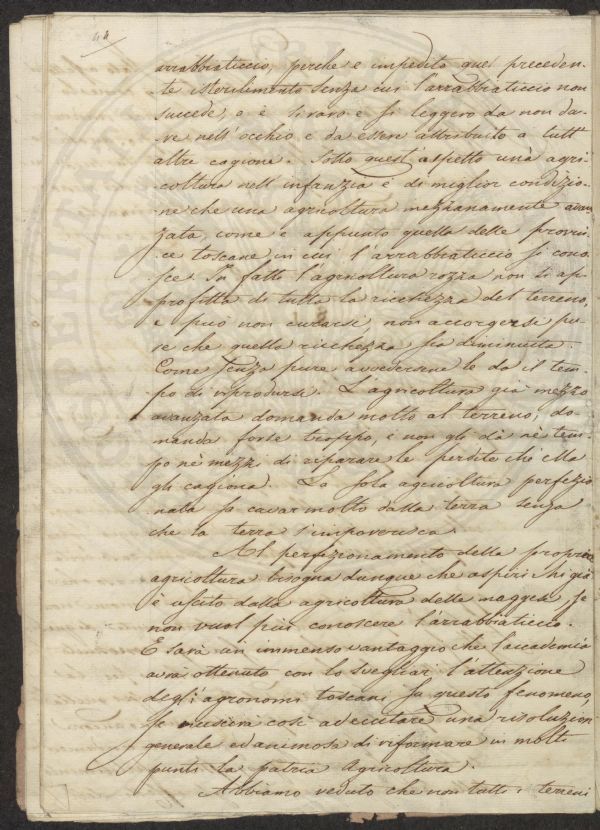 44
arrabbiaticcio, perche è impedito quel preceden-
te sterilimento senza cui l'arrabbiaticcio non
succede, o è sì raro e sì leggero da non da-
re nell'occhio e da essere attribuito a tutt'
altre cagione. Sotto quest'aspetto una agri-
coltura nell'infanzia è di miglior condizio-
ne che una agricoltura mezzanamente avan-
zata, come è appunto quella delle provin-
ce toscane in cui l'arrabbiaticcio si cono-
sce. In fatti l'agricoltura rozza non si ap-
profitta di tutta la ricchezza del terreno,
e può non curarsi, non accorgersi pu-
re che quella ricchezza sia diminuita.
Come senza pure avvedersene le da il tem-
po di riprodursi. L'agricoltura già mezzo
avanzata domanda molto al terreno, do-
manda forse troppo, e non gli dà nè tem-
po nè mezzi di riparare le perdite che ella
gli cagiona. La sola agricoltura perfezio
nata sa cavar molto dalla terra senza
che la terra s'impoverisca.
Al perfezionamento della propria
agricoltura bisogna dunque che aspiri chi già
è uscito dalla agricoltura delle maggesi, se
non vuol più conoscere l'arrabbiaticcio.
E sarà un immenso vantaggio che l'accademia
avrà ottenuto con lo svegliar l'attenzione
degli agronomi toscani su questo fenomeno,
se riuscirà così ad eccitare una risoluzion
generale ed animosa di riformare in molti
punti la patria agricoltura.
Abbiamo veduto che non tutti i terreni